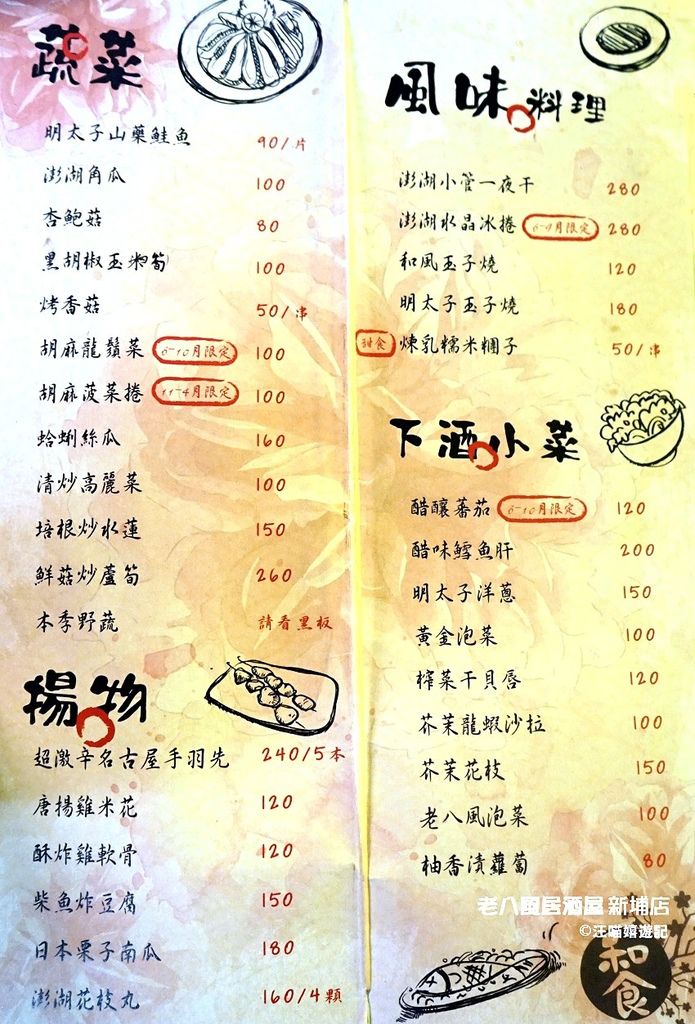 蔬菜
明太子山藥鮭魚 90/片
澎湖角瓜 100
杏鮑菇 80
黑胡椒玉米筍 100
烤香菇 50/串
胡麻龍鬚菜 6-10月限定 100
胡麻菠菜捲 11-4月限定 100
蛤蜊絲瓜 160
清炒高麗菜 100
培根炒水蓮 150
鮮菇炒蘆筍 260
本季野蔬 請看黑板
揚物
超激辛名古屋手羽先 240/5本
唐揚雞米花 120
酥炸雞軟骨 120
柴魚炸豆腐 150
日本栗子南瓜 180
澎湖花枝丸 160/4顆
風味料理
澎湖小管一夜干 280
澎湖水晶冰捲 6-9月限定 280
和風玉子燒 120
明太子玉子燒 180
甜食 煉乳糯米糰子 50/串
下酒小菜
醋釀蕃茄 6-10月限定 120
醋味鱈魚肝 200
明太子洋蔥 150
黃金泡菜 100
榨菜干貝唇 120
芥茉龍蝦沙拉 100
芥茉花枝 150
老八風泡菜 100
柚香漬蘿蔔 80
老八國居酒屋 新埔店
©汪喵嬉遊記
和食